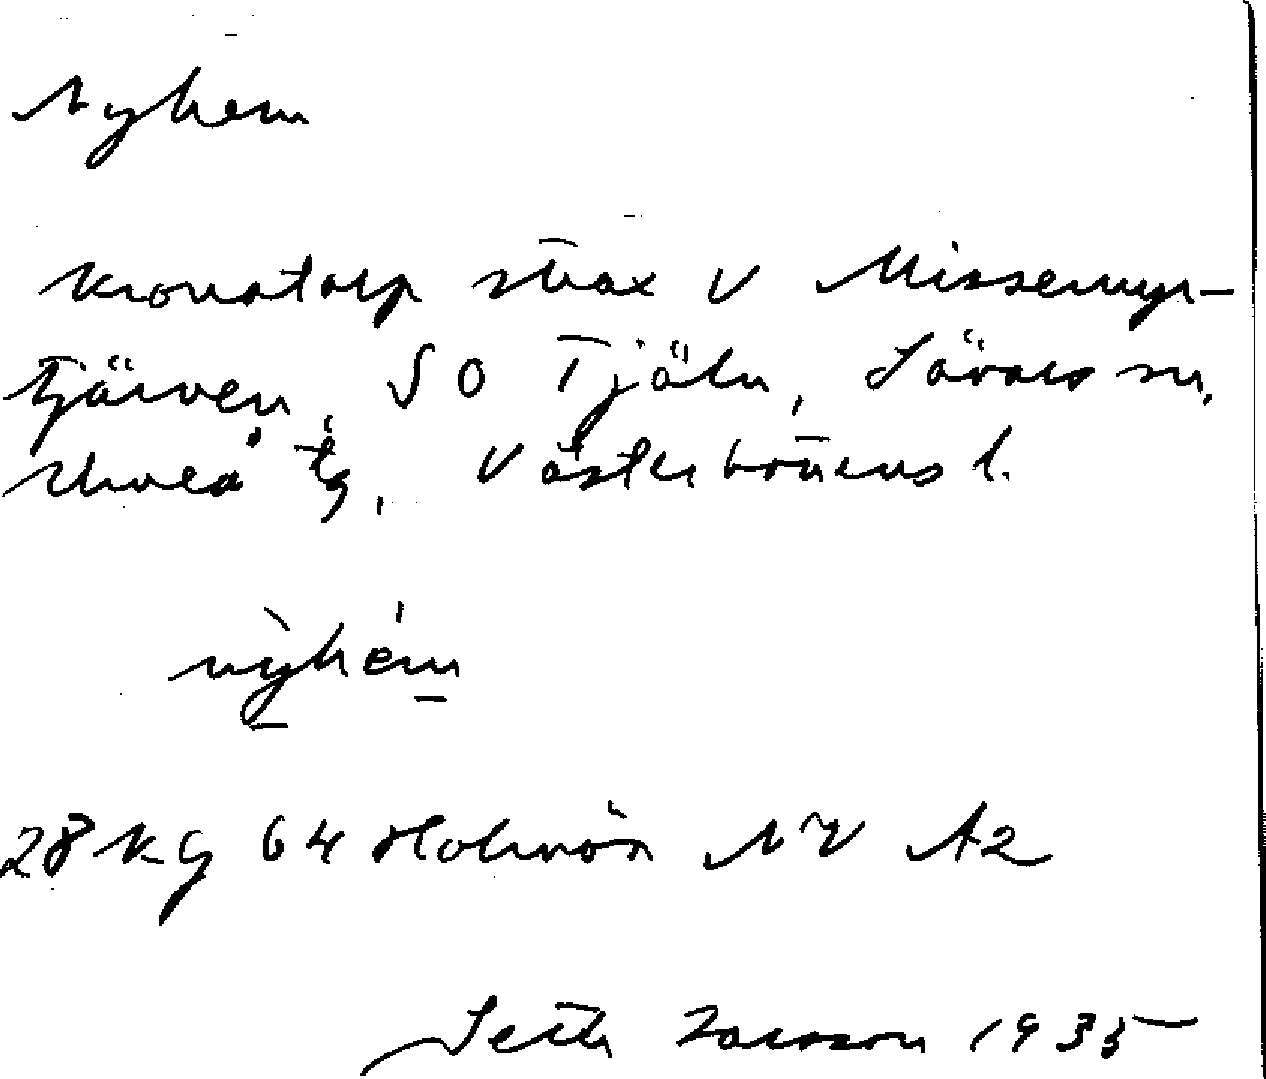 Nyhem
kronotorp strax V Missemyr-
tjärven, SO Tjäln, Sävars sn,
Umeå tg, Västerbottens l.
nỳhém
28 kg 64 Holmön NV A2
Seth Larsson 1935